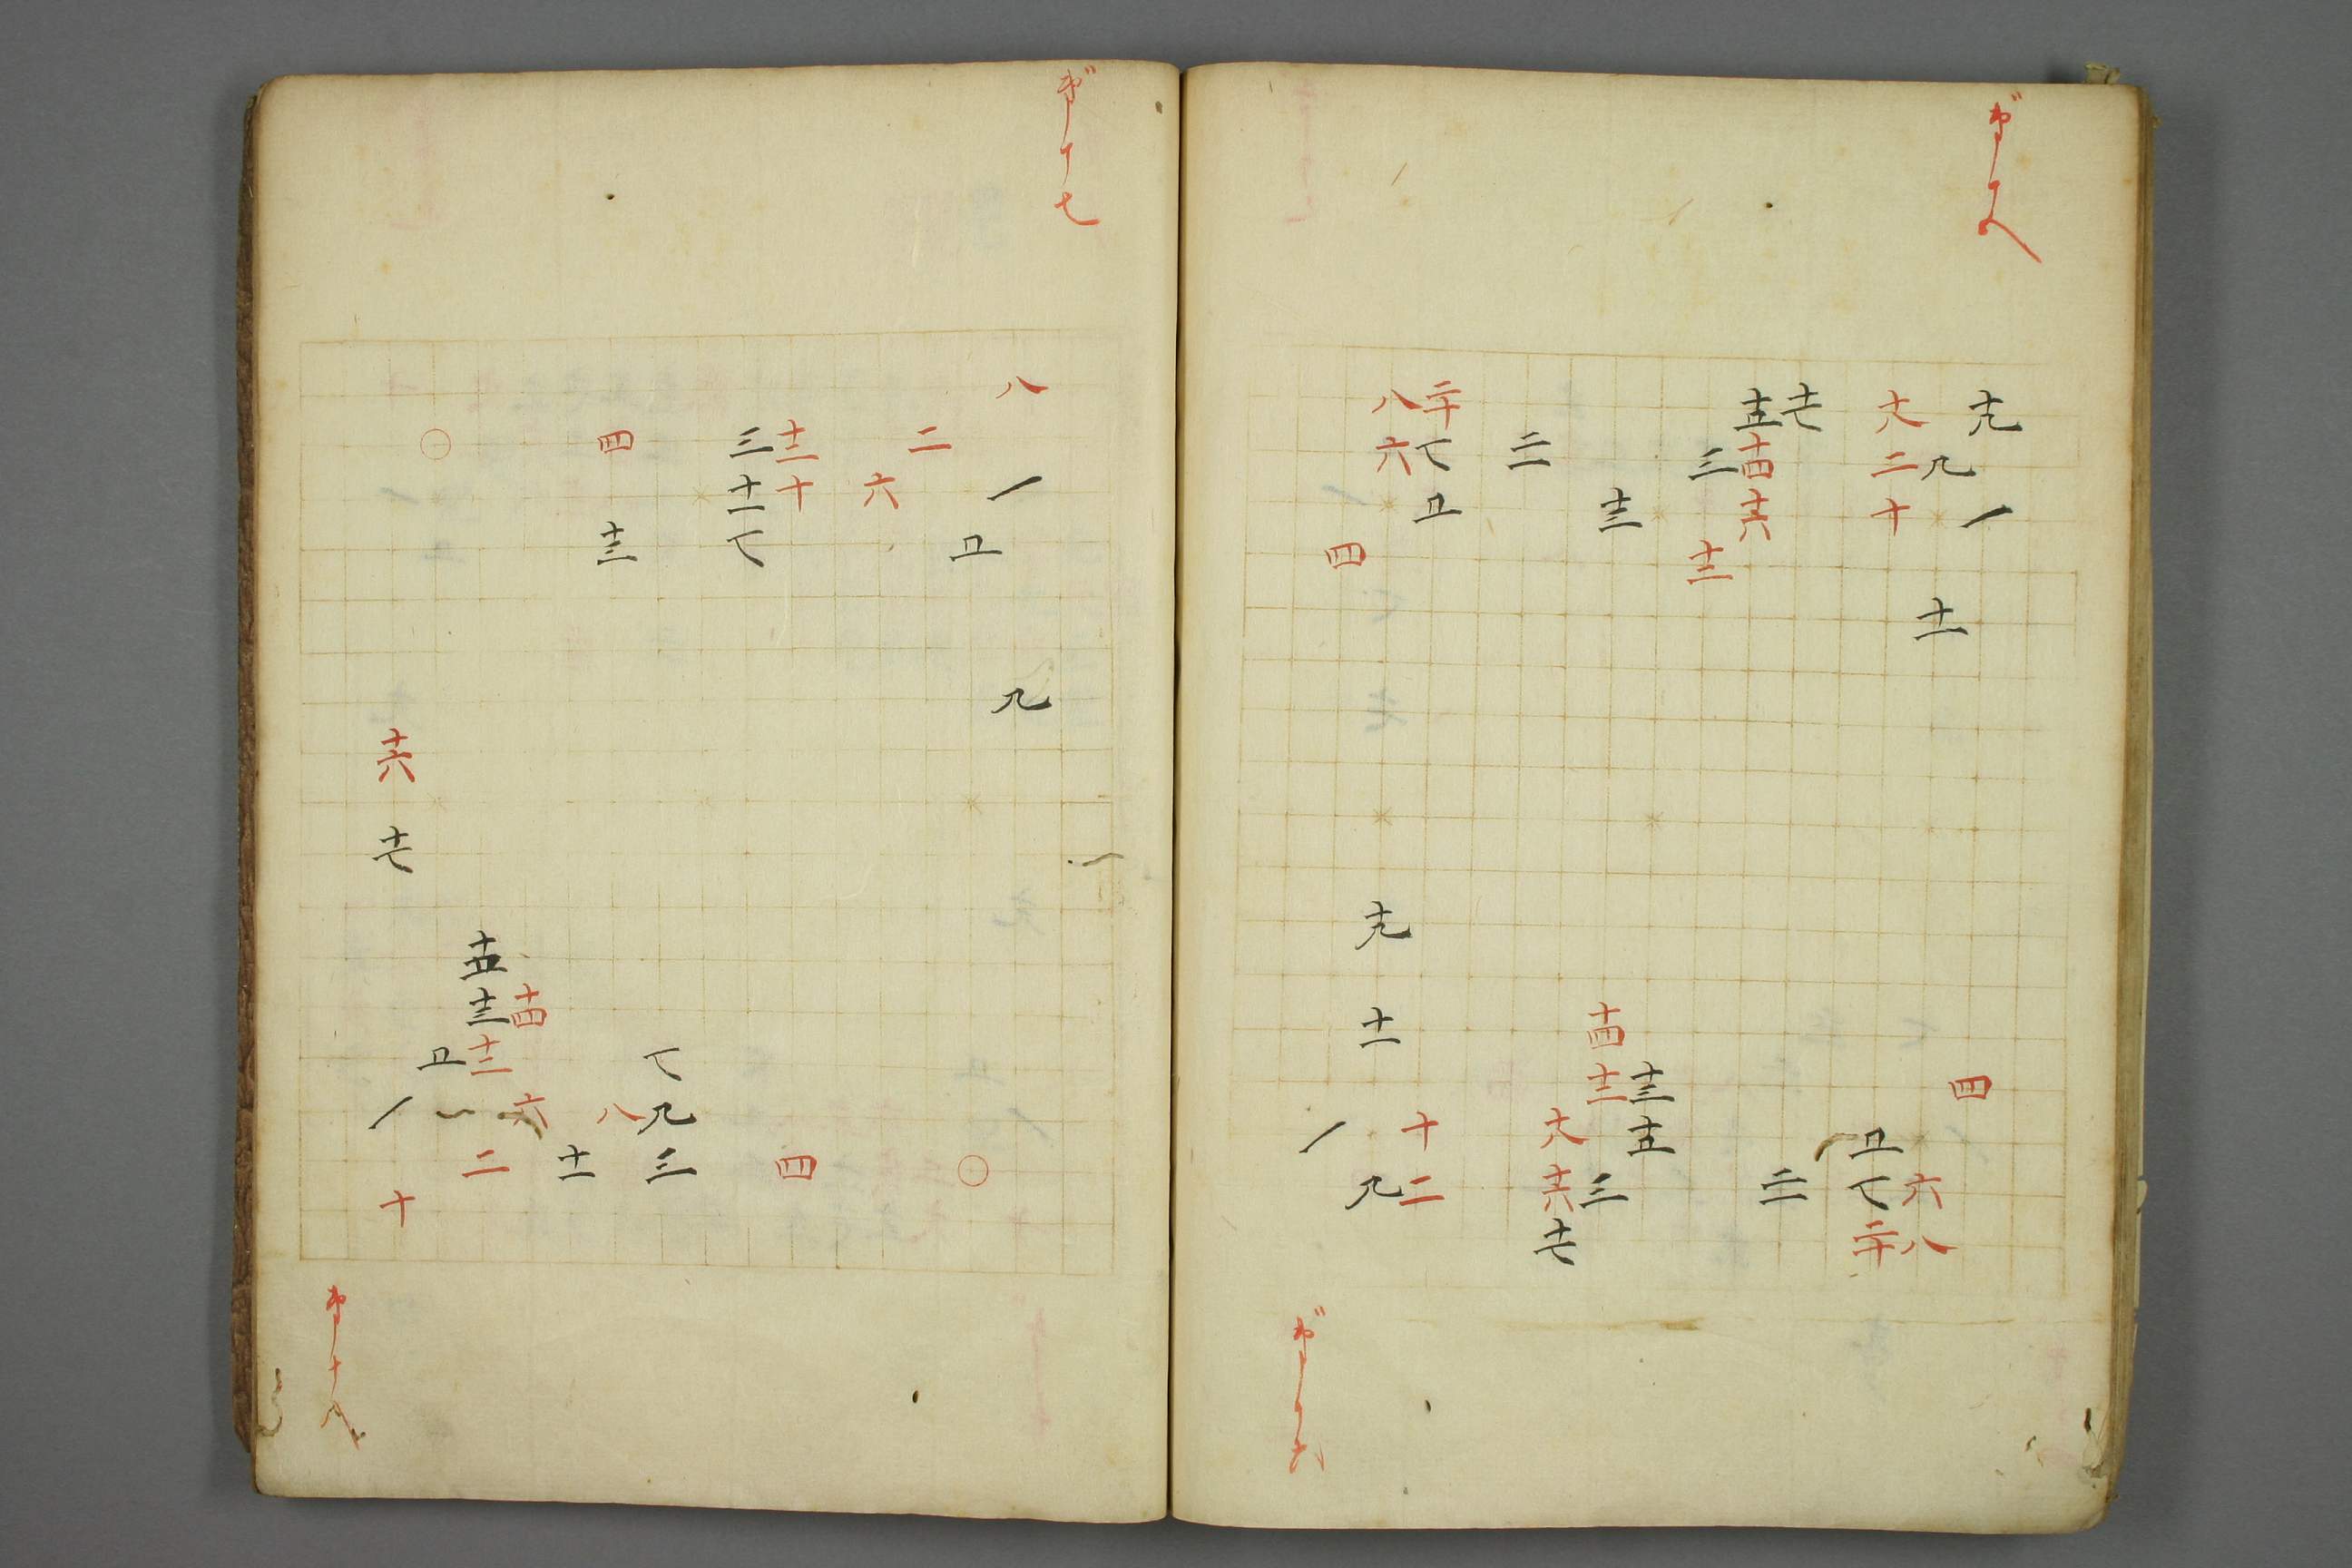 第十五
十九 一
九 十一
十八 二 十
十七
十五 十四 十六
三 十二
十三
二十一
二十 七 五
八 六
四
四
六 八
五 七 二十
二十一
十三 十五
十四 十二 三
十八 十六 十七
十 二
十九 十一 九
一
第十六
第十七
八 一 九
五
二
六
十二 十
三 十一 七
四 十三
○
○
四
七 九 三
八
十一
十四 六
十五 十三 十二 二
五
十六 十七 一 十
第十八